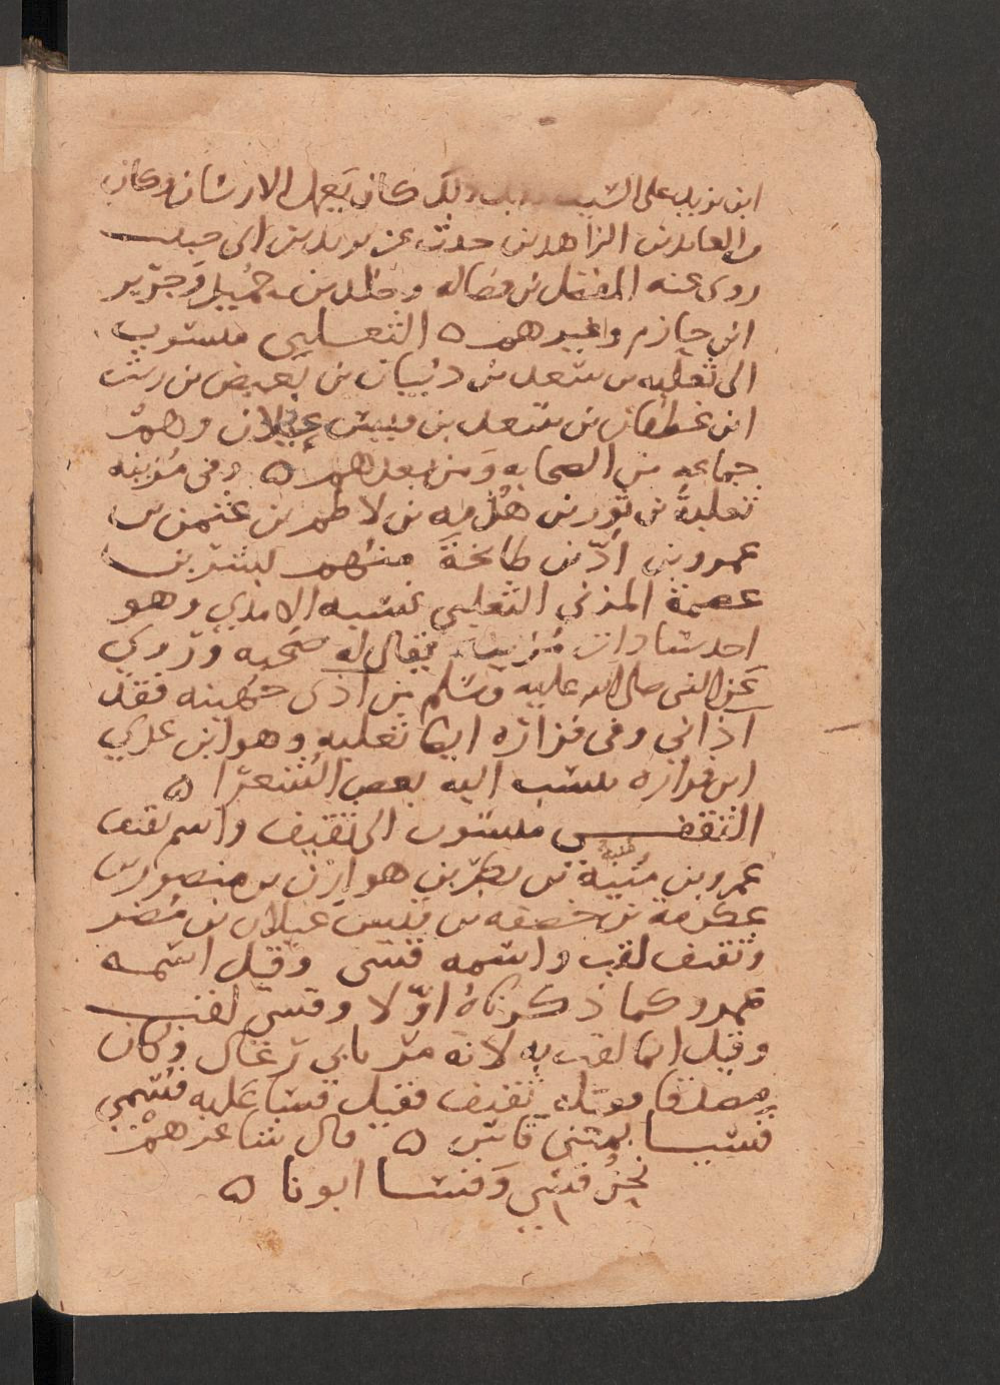 ابن يزيد على الشبيه ذلك كان يعمل الارشان وكان
من العابدين الزاهدين حدث عن يزيد بن ابى حبيب
روى عنه المفضل بن فضاله وخلد بن حميد وَجرير
ابن حازم وغيرهم ه الثعلبى منسوب
الى ثعلبه بن سعد بن ذبيان بن بغيض بن ريث
ابن غطفان بن سعد بن قيس عيلان وهمْ
جماعه من الصحابه وَمن بعدهم ه وفى مُزينه
ثعلبةُ بن ثور بن هُذمه بن لاطم بن عثمن بن
عمرو بن ادّ بن طابخةَ منهُم لبشر بن
عصمة المزني الثعلبى نسبه الامدي وهو
احد سادات مُزينه يقال له صحبه ورَوي
عَن النبى صلى الله عليه وسَلم من اذى جهينه فقد
اذاني وفى فزاره ايضا ثعلبه وهو ابن عدي
ابن فزاره ينسب اليه بعض الشعرا ه
الثقفى منسوب الى ثقيف واسم ثقيف
عَمرو بن مُنَبّه بن بكر بن هوازن بن منصور بن
عكرمة بن خصفه بن قيس عيلان بن مُضر
وثقيف لقب واسمه قسى وقيل اسمه
عمرو كما ذكرناهُ اوّلا وقسي لقب
وقيل انما لقب به لانه مرّ بابى رغال وكان
مصدقا فقتله ثقيف فقيل قسا عَليه فسُمي
قسيا بمعنى قاسٍ ه قال شاعرهمْ
نحنُ قسِي وَقسا ابونا ه